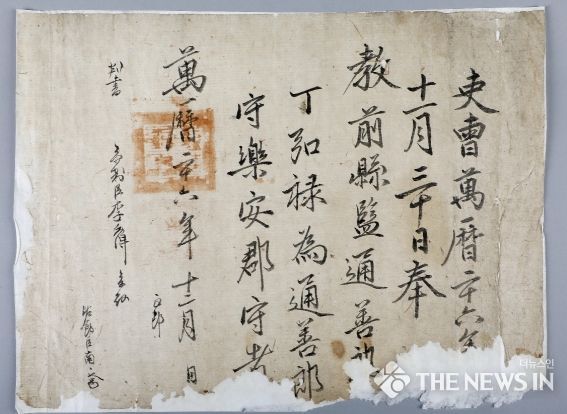 吏曹萬曆二十六年
十一月三十日奉
教前縣監通善郎
丁弘祿為通善郎
守樂安郡守者
萬曆二十六年十二月 日
判書
參判臣李
正郎
佐郎臣南
더뉴스인
THE NEWS IN